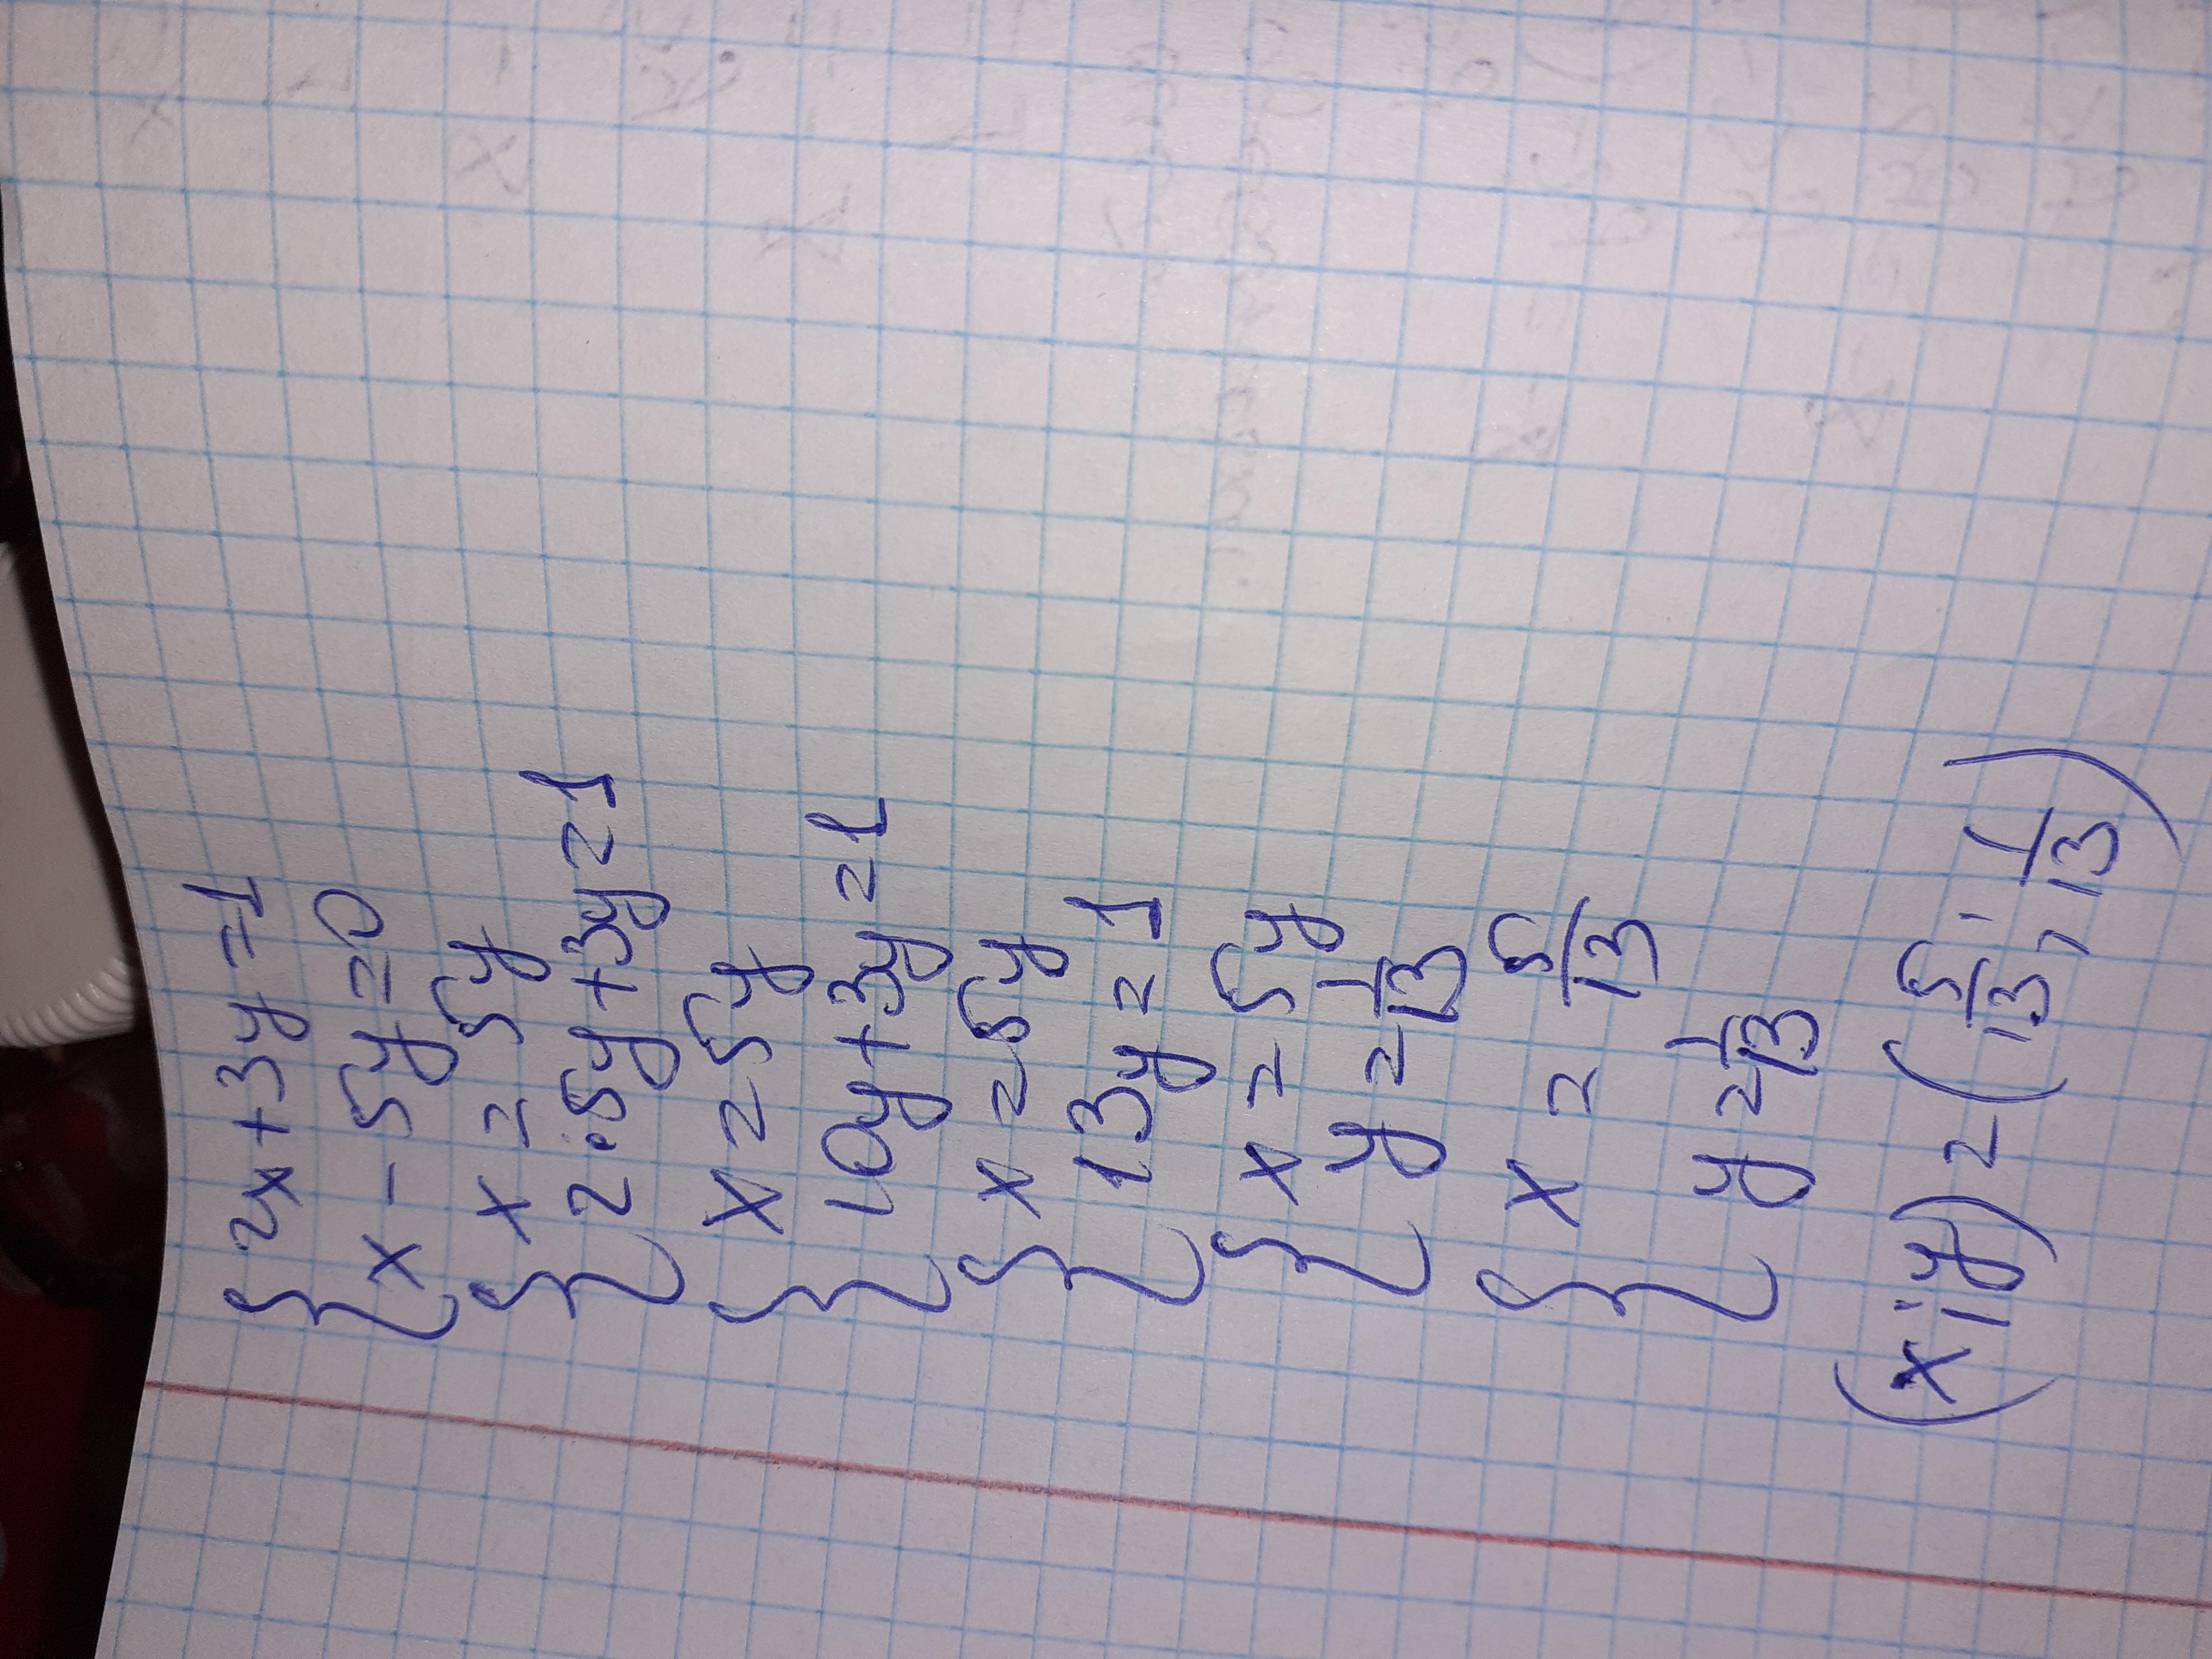 { 2x + 3y = 1
x - 5y = 0
{ x = 5y
2·5y + 3y = 1
{ x = 5y
10y + 3y = 1
{ x = 5y
13y = 1
{ x = 5y
y = 1/13
{ x = 5/13
y = 1/13
(x; y) = (5/13; 1/13)